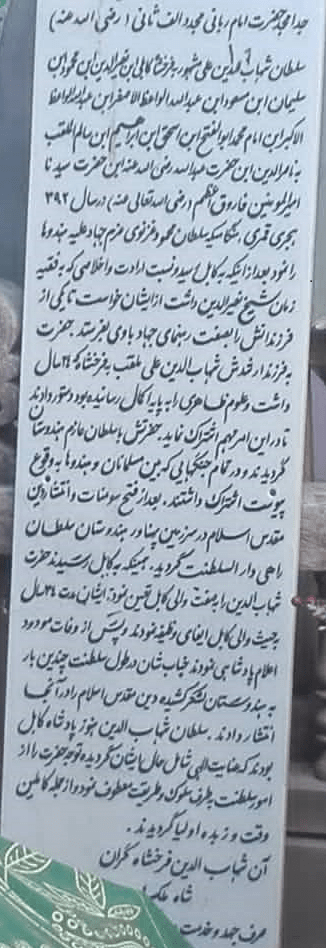 جد امجد حضرت امام ربانی مجدد الف ثانی ( رضی الله عنه )
سلطان شهاب الدین علی مشهور بفرخشاه کابلی ابن نصیرالدین ابن محمود ابن
سلیمان ابن مسعود ابن عبدالله الواعظ الاصغر ابن عبدالله الواعظ
الاکبر ابن امام محمد ابوالفتح ابن اسحق ابن ابراهیم ابن سالم الملقب
به ناصرالدین ابن حضرت عبدالله رضی الله عنه ابن حضرت سیدنا
امیرالمومنین فاروق اعظم (رضی الله تعالی عنه) در سال ۳۹۲
هجری قمری هنگامیکه سلطان محمود غزنوی عزم جهاد علیه هندوها
را نمود بعد از اینکه به کابل رسید و نسبت ارادت و اخلاصی که به فقیه
زمان شیخ نصیرالدین داشت از ایشان خواست تا یکی از
فرزندانش را بصفت رهنمای جهاد با وی بفرستد حضرت
به فرزند ارشدش شهاب الدین علی ملقب بفرخشاه که ۲۴ سال
داشت و علوم ظاهری را به پایه اکمال رسانیده بود دستور دادند
تا در این امر مهم اشتراک نماید. حضرتش با سلطان عازم هندوستان
گردیدند و در تمام جنگهایی که بین مسلمانان و هندوها به وقوع
پیوست اشتراک داشتند. بعد از فتح سومنات و انتشار دین
مقدس اسلام در سرزمین پهناور هندوستان سلطان
راهی دارالسلطنت گردید. همینکه به کابل رسیدند حضرت
شهاب الدین را بصفت والی کابل تعیین نمود. ایشان مدت ۳۴ سال
به حیث والی کابل ایفای وظیفه نمودند و پس از وفات مودود
اعلام پادشاهی نمودند جناب شان در طول سلطنت چندین بار
به هندوستان لشکر کشیده دین مقدس اسلام را در آنجا
انتشار دادند. سلطان شهاب الدین هنوز پادشاه کابل
بودند که عنایت الهی شامل حال ایشان گردیده توجه حضرت را از
امور سلطنت به طرف سلوک و طریقت معطوف نمود و از جمله کاملین
وقت و زبده اولیا گردیدند.
آن شهاب الدین فرخشاه گران
شاه ملک
صرف جهد و خدمت